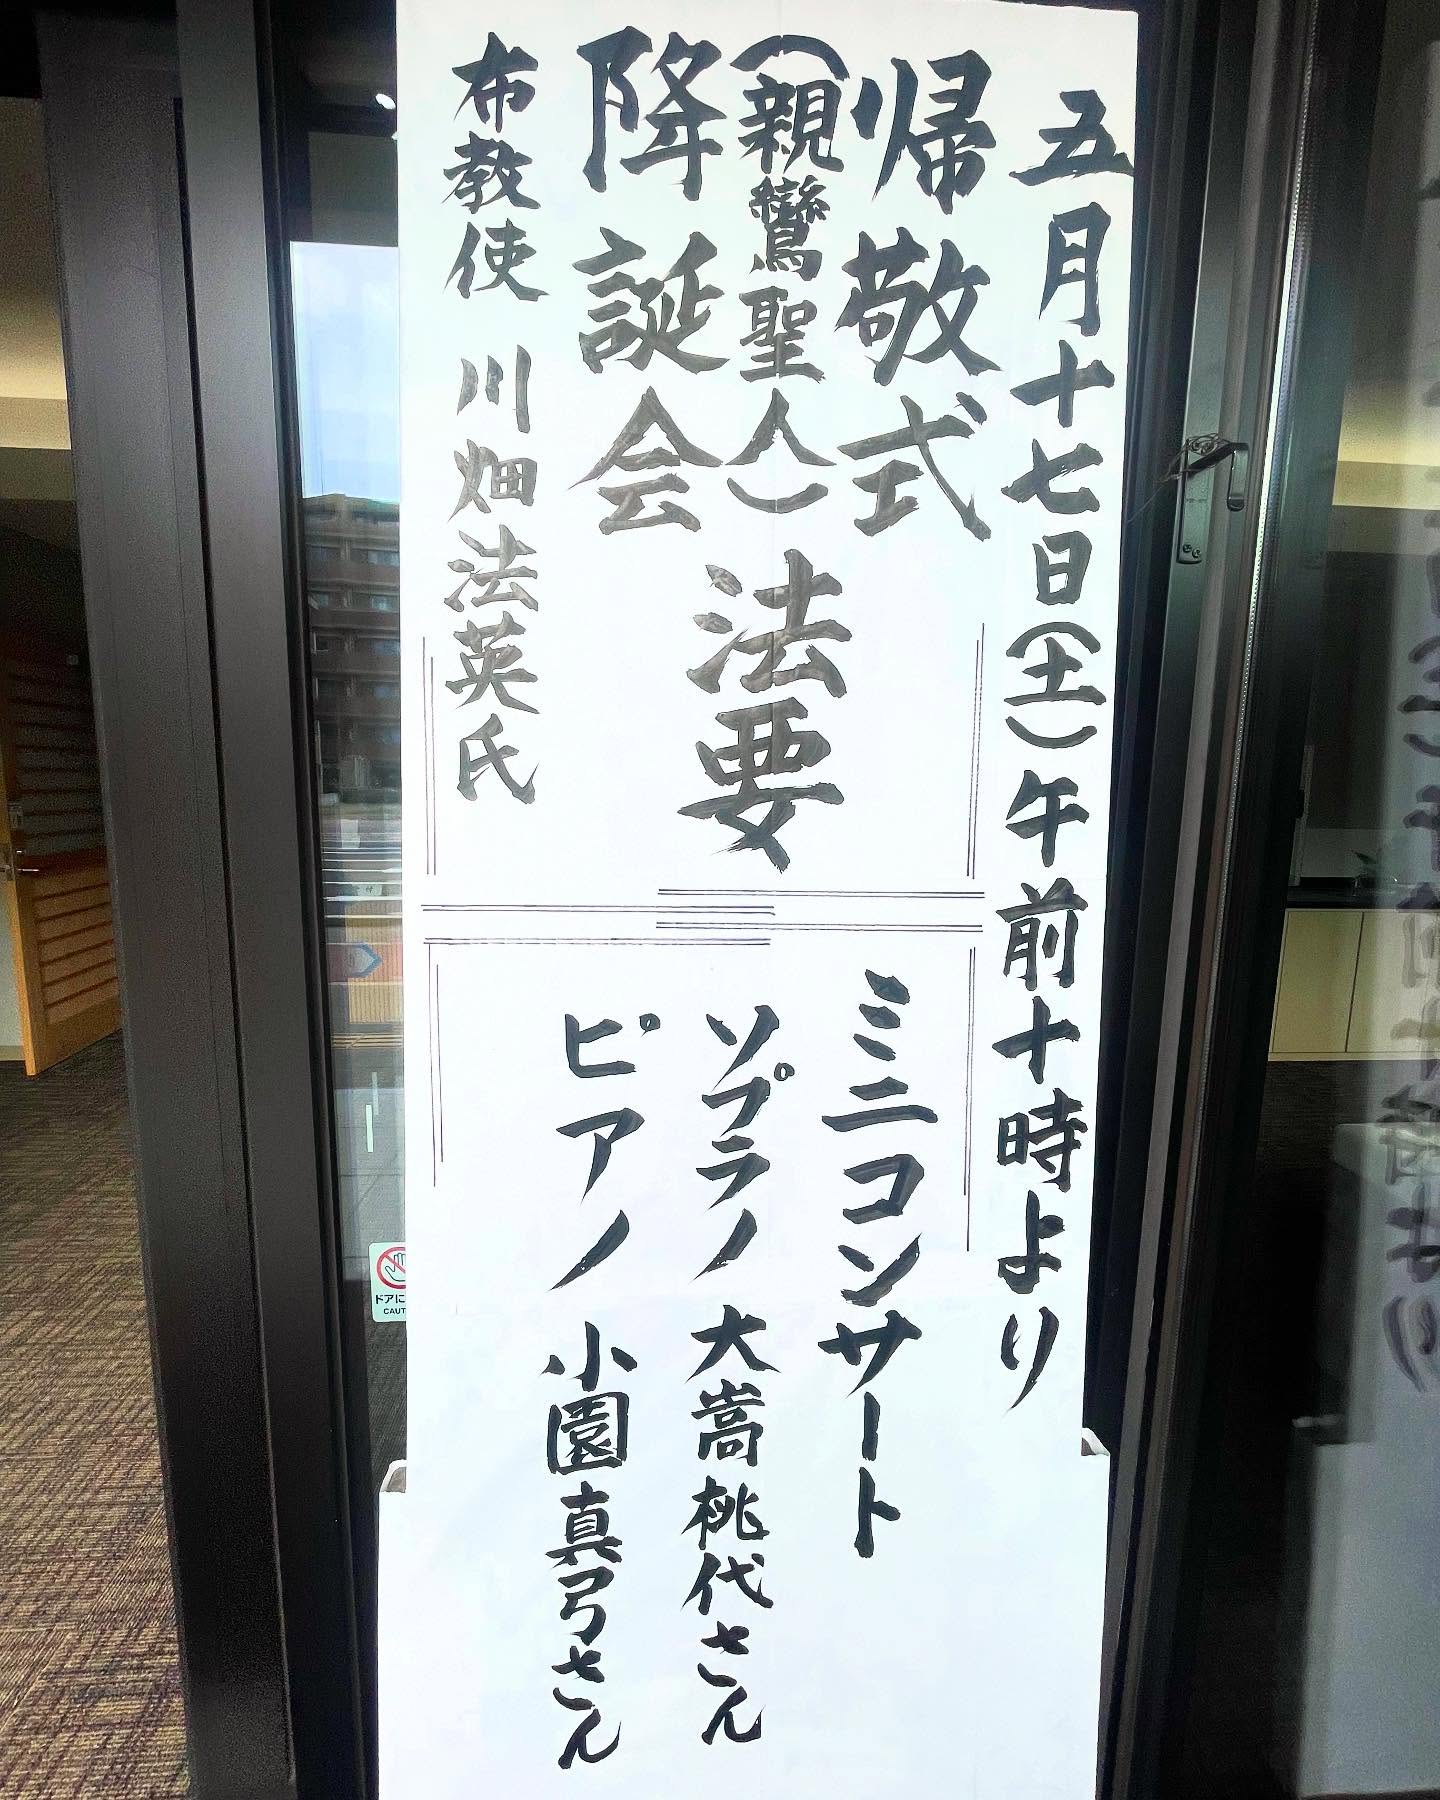 五月十七日(土)午前十時より
帰敬式
(親鸞聖人)
降誕会
法要
布教使 川畑法英氏
ミニコンサート
ソプラノ 大嵩桃代さん
ピアノ 小園真弓さん
ドアに
CAUT